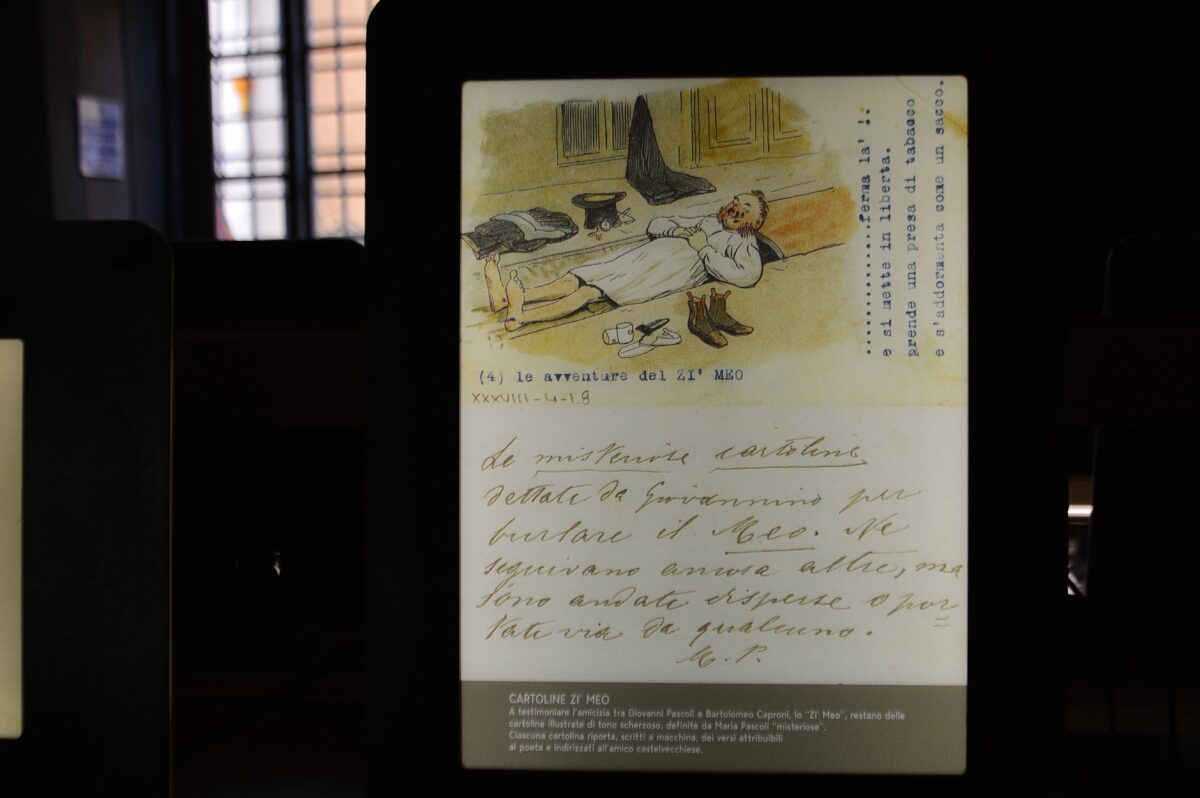 ...............ferma la' !.
e si mette in liberta.
prende una presa di tabacco
e s'addormenta come un sacco.
(4) le avventure del ZI' MEO
XXXVIII-4-18
Le misteriose cartoline
dettate da Giovannino per
burlare il Meo. Ne
seguivano ancora altre, ma
sono andate disperse o por
tate via da qualcuno.
M. P.
CARTOLINE ZI' MEO
A testimoniare l'amicizia tra Giovanni Pascoli e Bartolomeo Caproni, lo "Zi' Meo", restano delle
cartoline illustrate di tono scherzoso, definite da Maria Pascoli "misteriose".
Ciascuna cartolina riporta, scritti a macchina, dei versi attribuibili
al poeta e indirizzati all'amico castelvecchiese.